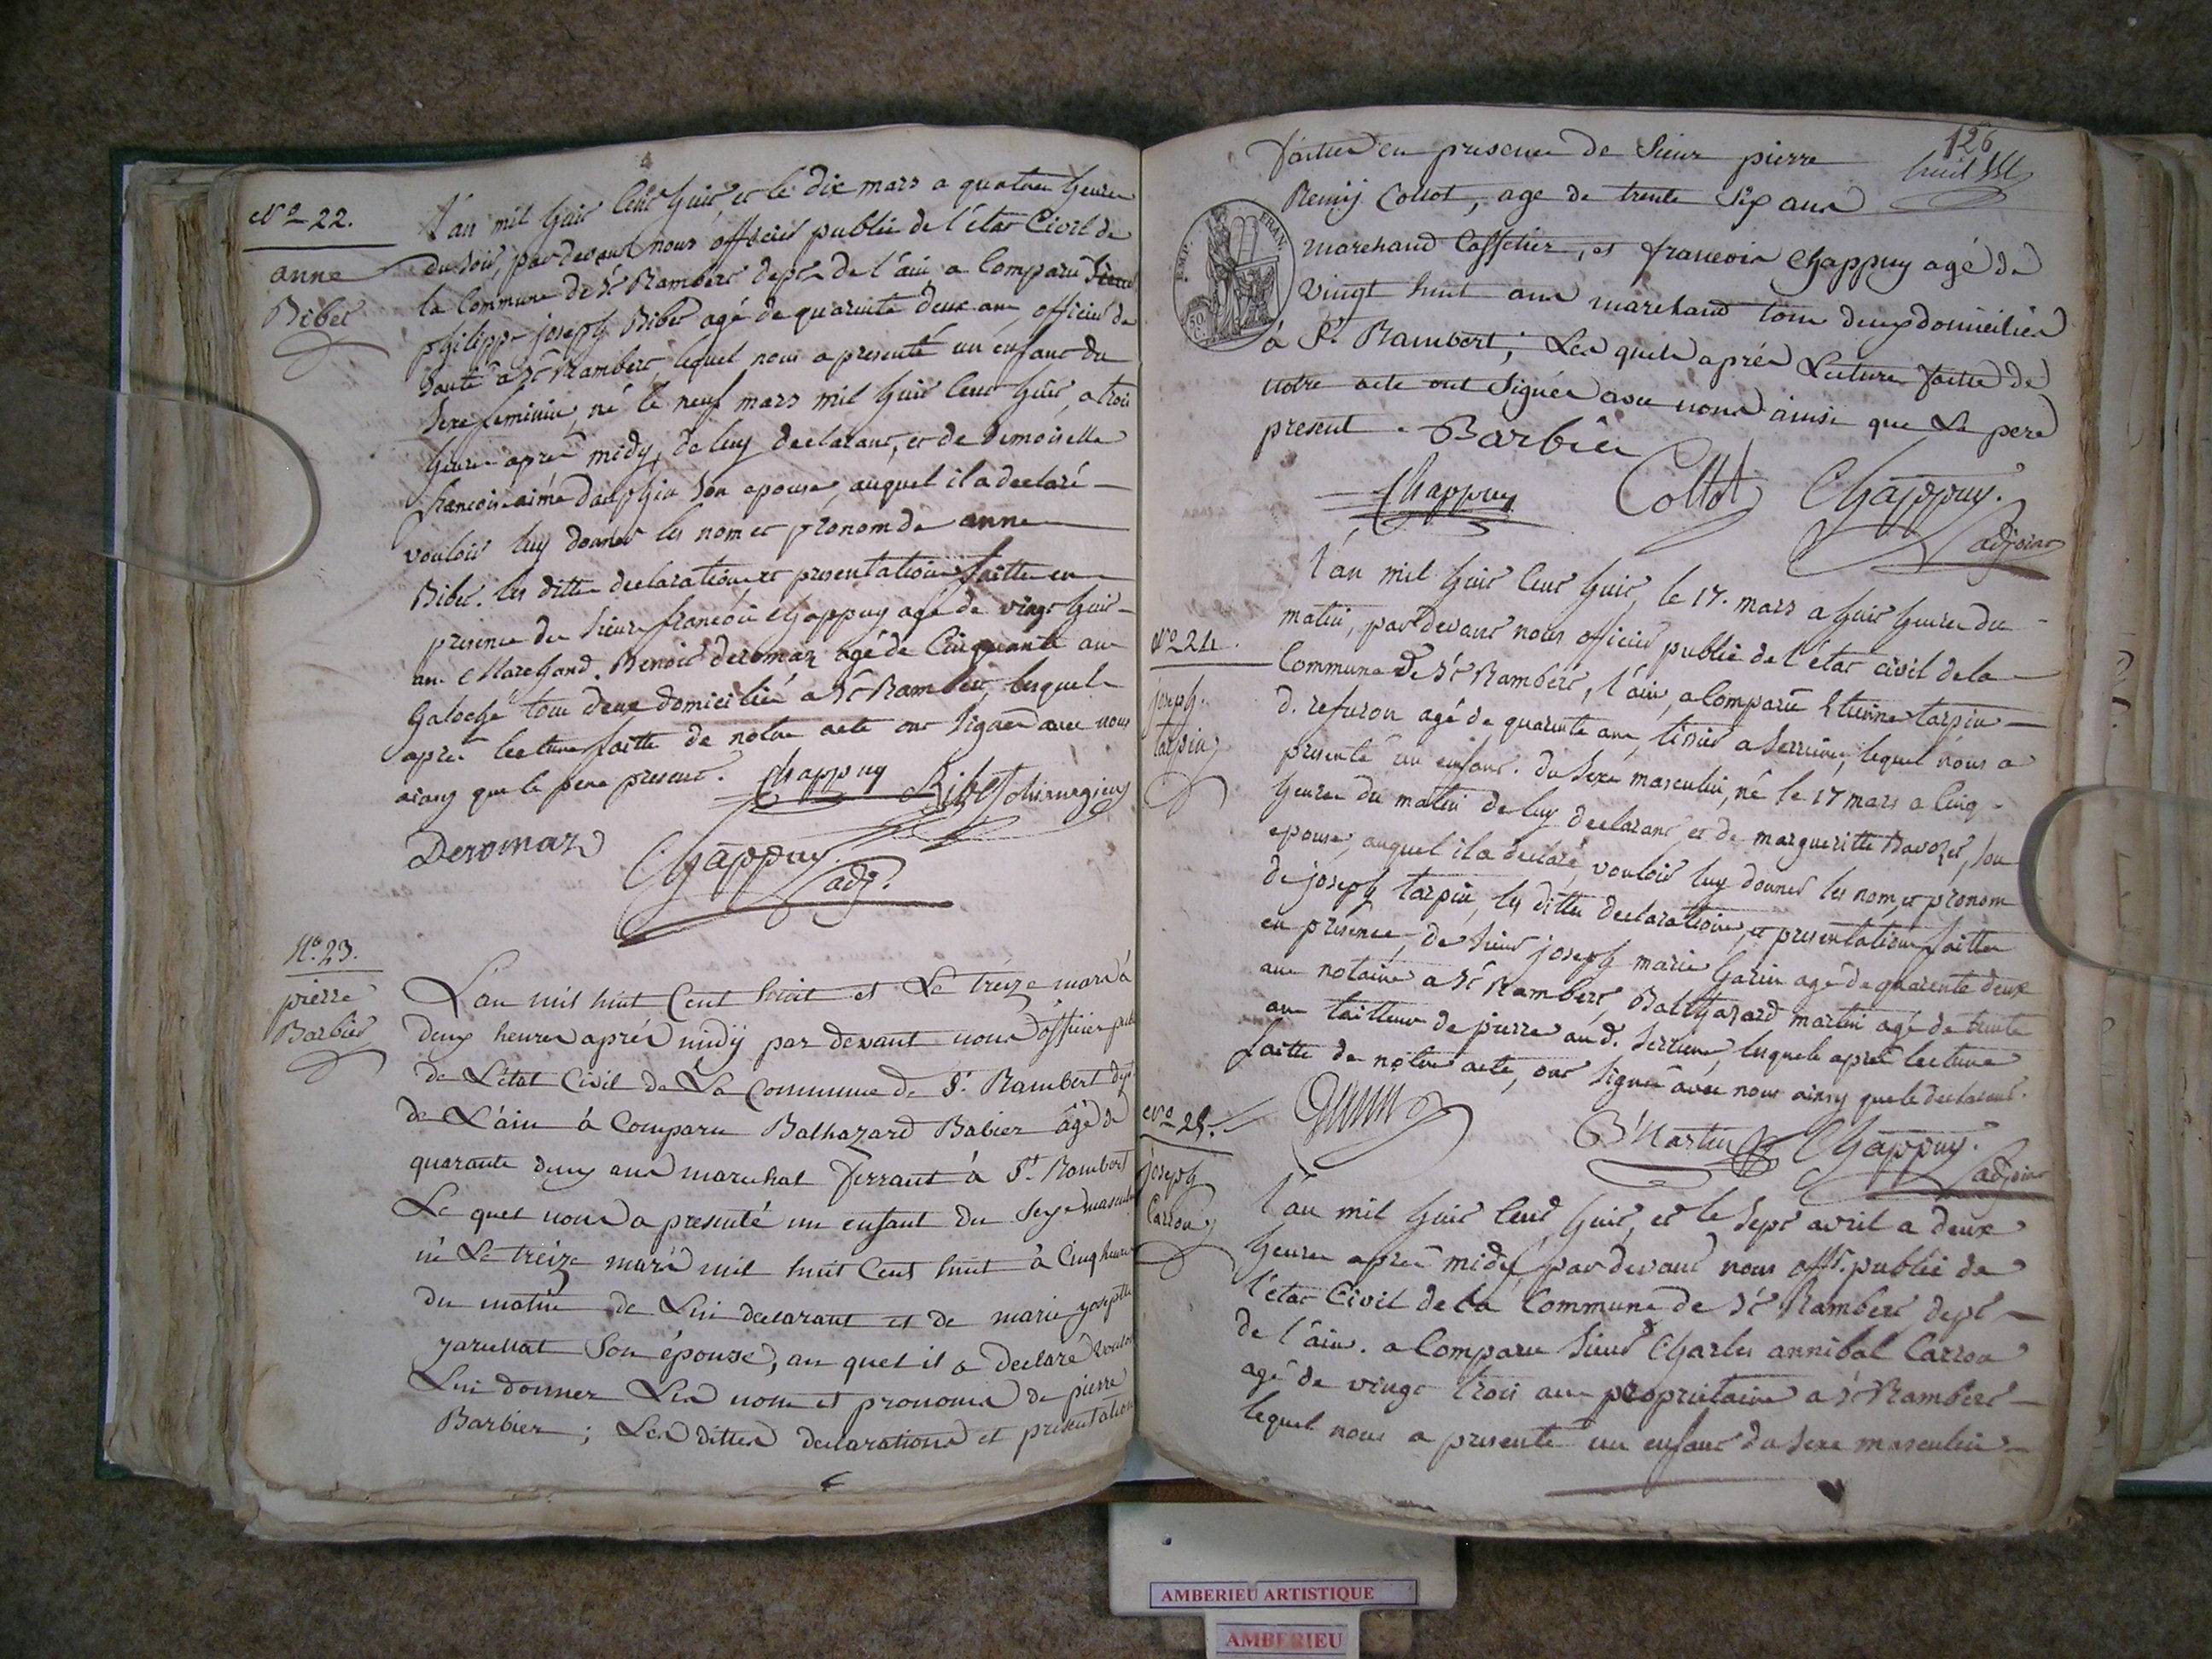 N° 22.
anne
Bibet
L'an mil huit cent huit, et le dix mars a quatres heures
du soir, par devant nous officier public de l'état Civil de
la Commune de St Rambert dept de l'ain a Comparu Sieur
philippe joseph Bibet agé de quarante deux ans, officier de
santé a St Rambert, lequel nous a presenté un enfant du
sexe feminin, né le neuf mars mil huit cent huit, a trois
heures après midy, de luy declarant, et de demoiselle
francoise aimé dauphin son epouse, auquel il a declaré
vouloir luy donner les nom et pronom de anne
Bibet. les dittes declaration et presentation faitte en
presence de sieurs francois Chappuy agé de vingt huit
ans Marchand. Benoit deromaz agé de Cinquante ans
Galoche tous deux domicilié a St Rambert, lesquels
après lecture faitte de notre acte ont signer avec nous
ainsy que le pere present. Chappuy Bibet chirurgien
Deromaz Chappuy.
adj.
N°. 23.
pierre
Barbier
L'an mil huit Cent huit et Le treize mars à
deux heures aprés midÿ par devant nous officier public
de L'état Civil de La Commune de St. Rambert dept
de L'ain à Comparu Balhazard Babier âgé de
quarante deux ans marechal ferrant à St. Rambert
Le quel nous a presenté un enfant du Sexe masculin
né Le treize mars mil huit Cent huit à Cinq heures
du matin de Lui declarant et de marie josephte
Son épouse, au quel il a declaré vouloir
Lui donner Les nom et pronoms de pierre
Barbier ; Les dittes declarations et presentation
126
huit
faittes en presence de Sieur pierre
Remij Collot, age de trente Six ans
marchand Caffetier, et francois Chappuy agé de
vingt huit ans marchand tous deux domiciliés
à St. Rambert ; Les quels aprés Lecture faitte de
notre acte ont signés avec nous ainsi que Le pere
present. Barbier
EMP. FRAN.
50 C.
Chappuy Collot Chappuy.
adjoint
N° 24.
joseph
tarpin
L'an mil huit cent huit, le 17. mars a huit heures du
matin, par devant nous officier public de l'état civil de la
Commune de St Rambert, l'ain, a Comparu Etienne tarpin
d. refuron agé de quarante ans, tissier a Serrieres, lequel nous a
presenté un enfant. du sexe masculin, né le 17 mars a Cinq
heures du matin de luy declarant et de margueritte Bavozet, son
epouse, auquel il a declaré, vouloir luy donner les nom, et pronom
de joseph tarpin, les dittes declaration, et presentation faitte
en présence, de sieur joseph marie Garin agé de quarente deux
ans notaire a St Rambert, Balthazard martin agé de trente
ans tailleur de pierre au d. Serrieres, lesquels après lecture
faitte de notre acte, ont signé avec nous ainsy que le declarant.
Garin B Martin Chappuy.
adjoint
N° 25.
joseph
Carron
L'an mil huit Cent huit, et le sept avril a deux
heures après midy, par devant nous offi. public de
l'état Civil de la Commune de St Rambert dept
de l'ain. a Comparu Sieur Charles annibal Carron
agé de vingt trois ans proprietaire a St Rambert
lequel nous a presenté un enfant du sexe masculin
AMBERIEU ARTISTIQUE
AMBERIEU